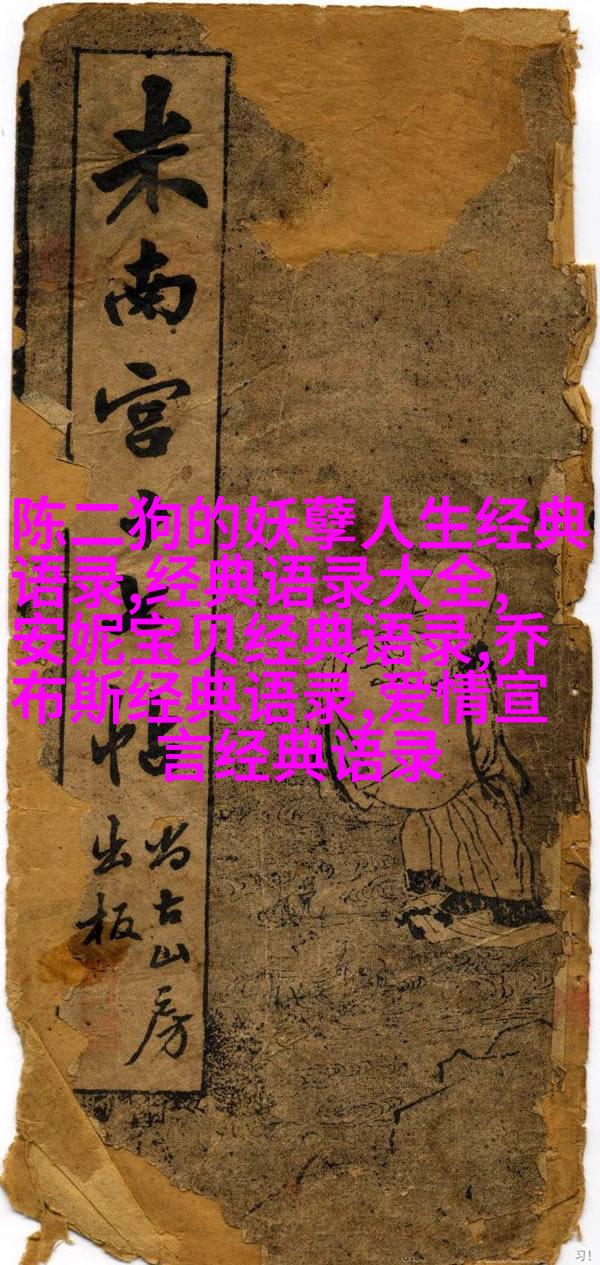 米南宫帖
尚古山房
出板
陈二狗的妖孽人生经典
语录,经典语录大全,
安妮宝贝经典语录,乔
布斯经典语录,爱情宣
言经典语录
习!